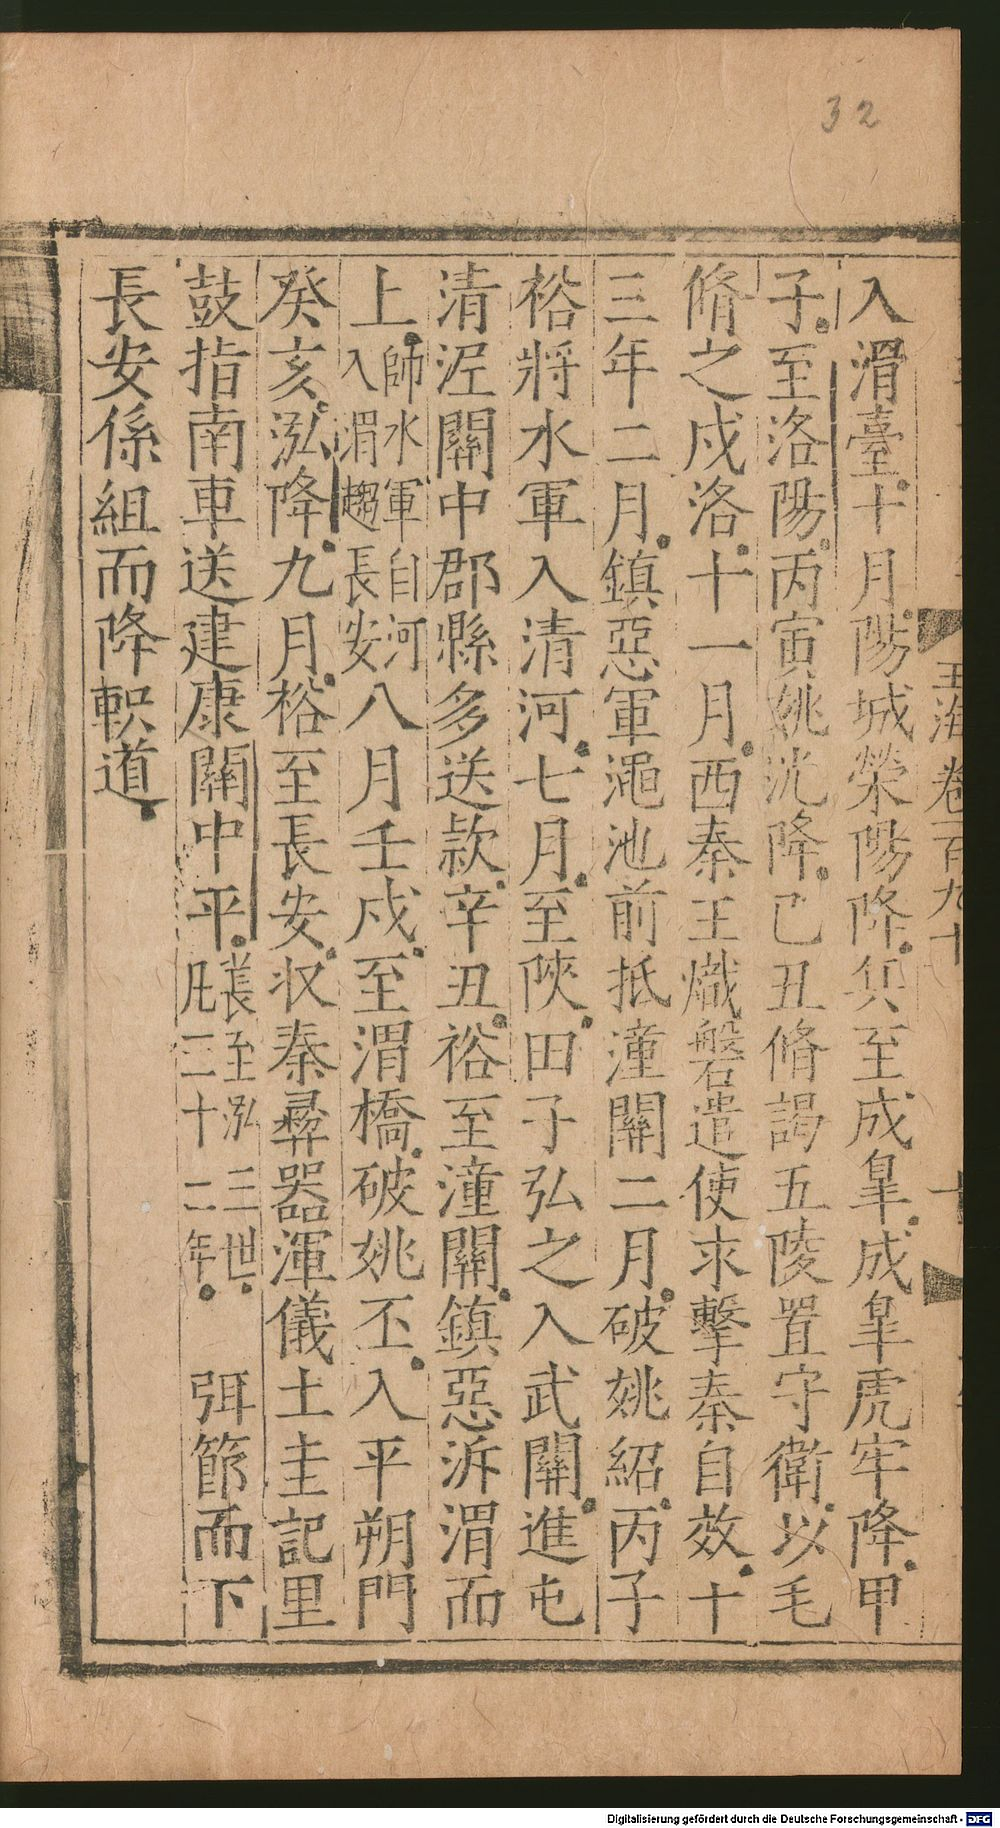 32
入渭臺十月陽城榮陽降兵至成皐成皐虎牢降甲
子至洛陽丙寅姚洸降己丑脩謁五陵置守衛以毛
脩之戍洛十一月西秦王熾磐遣使求擊秦自效十
三年二月鎮惡軍澠池前抵潼關二月破姚紹丙子
裕將水軍入清河七月至陜田子弘之入武關進屯
清泥關中郡縣多送款辛丑裕至潼關鎮惡泝渭而
上師水軍自河入渭趨長安八月壬戌至渭橋破姚丕入平朔門
癸亥泓降九月裕至長安収秦彞器渾儀土圭記里
鼓指南車送建康關中平萇至泓三世凡三十二年 弭節而下
長安係組而降軹道
玉海卷百九十
Digitalisierung gefördert durch die Deutsche Forschungsgemeinschaft - DFG